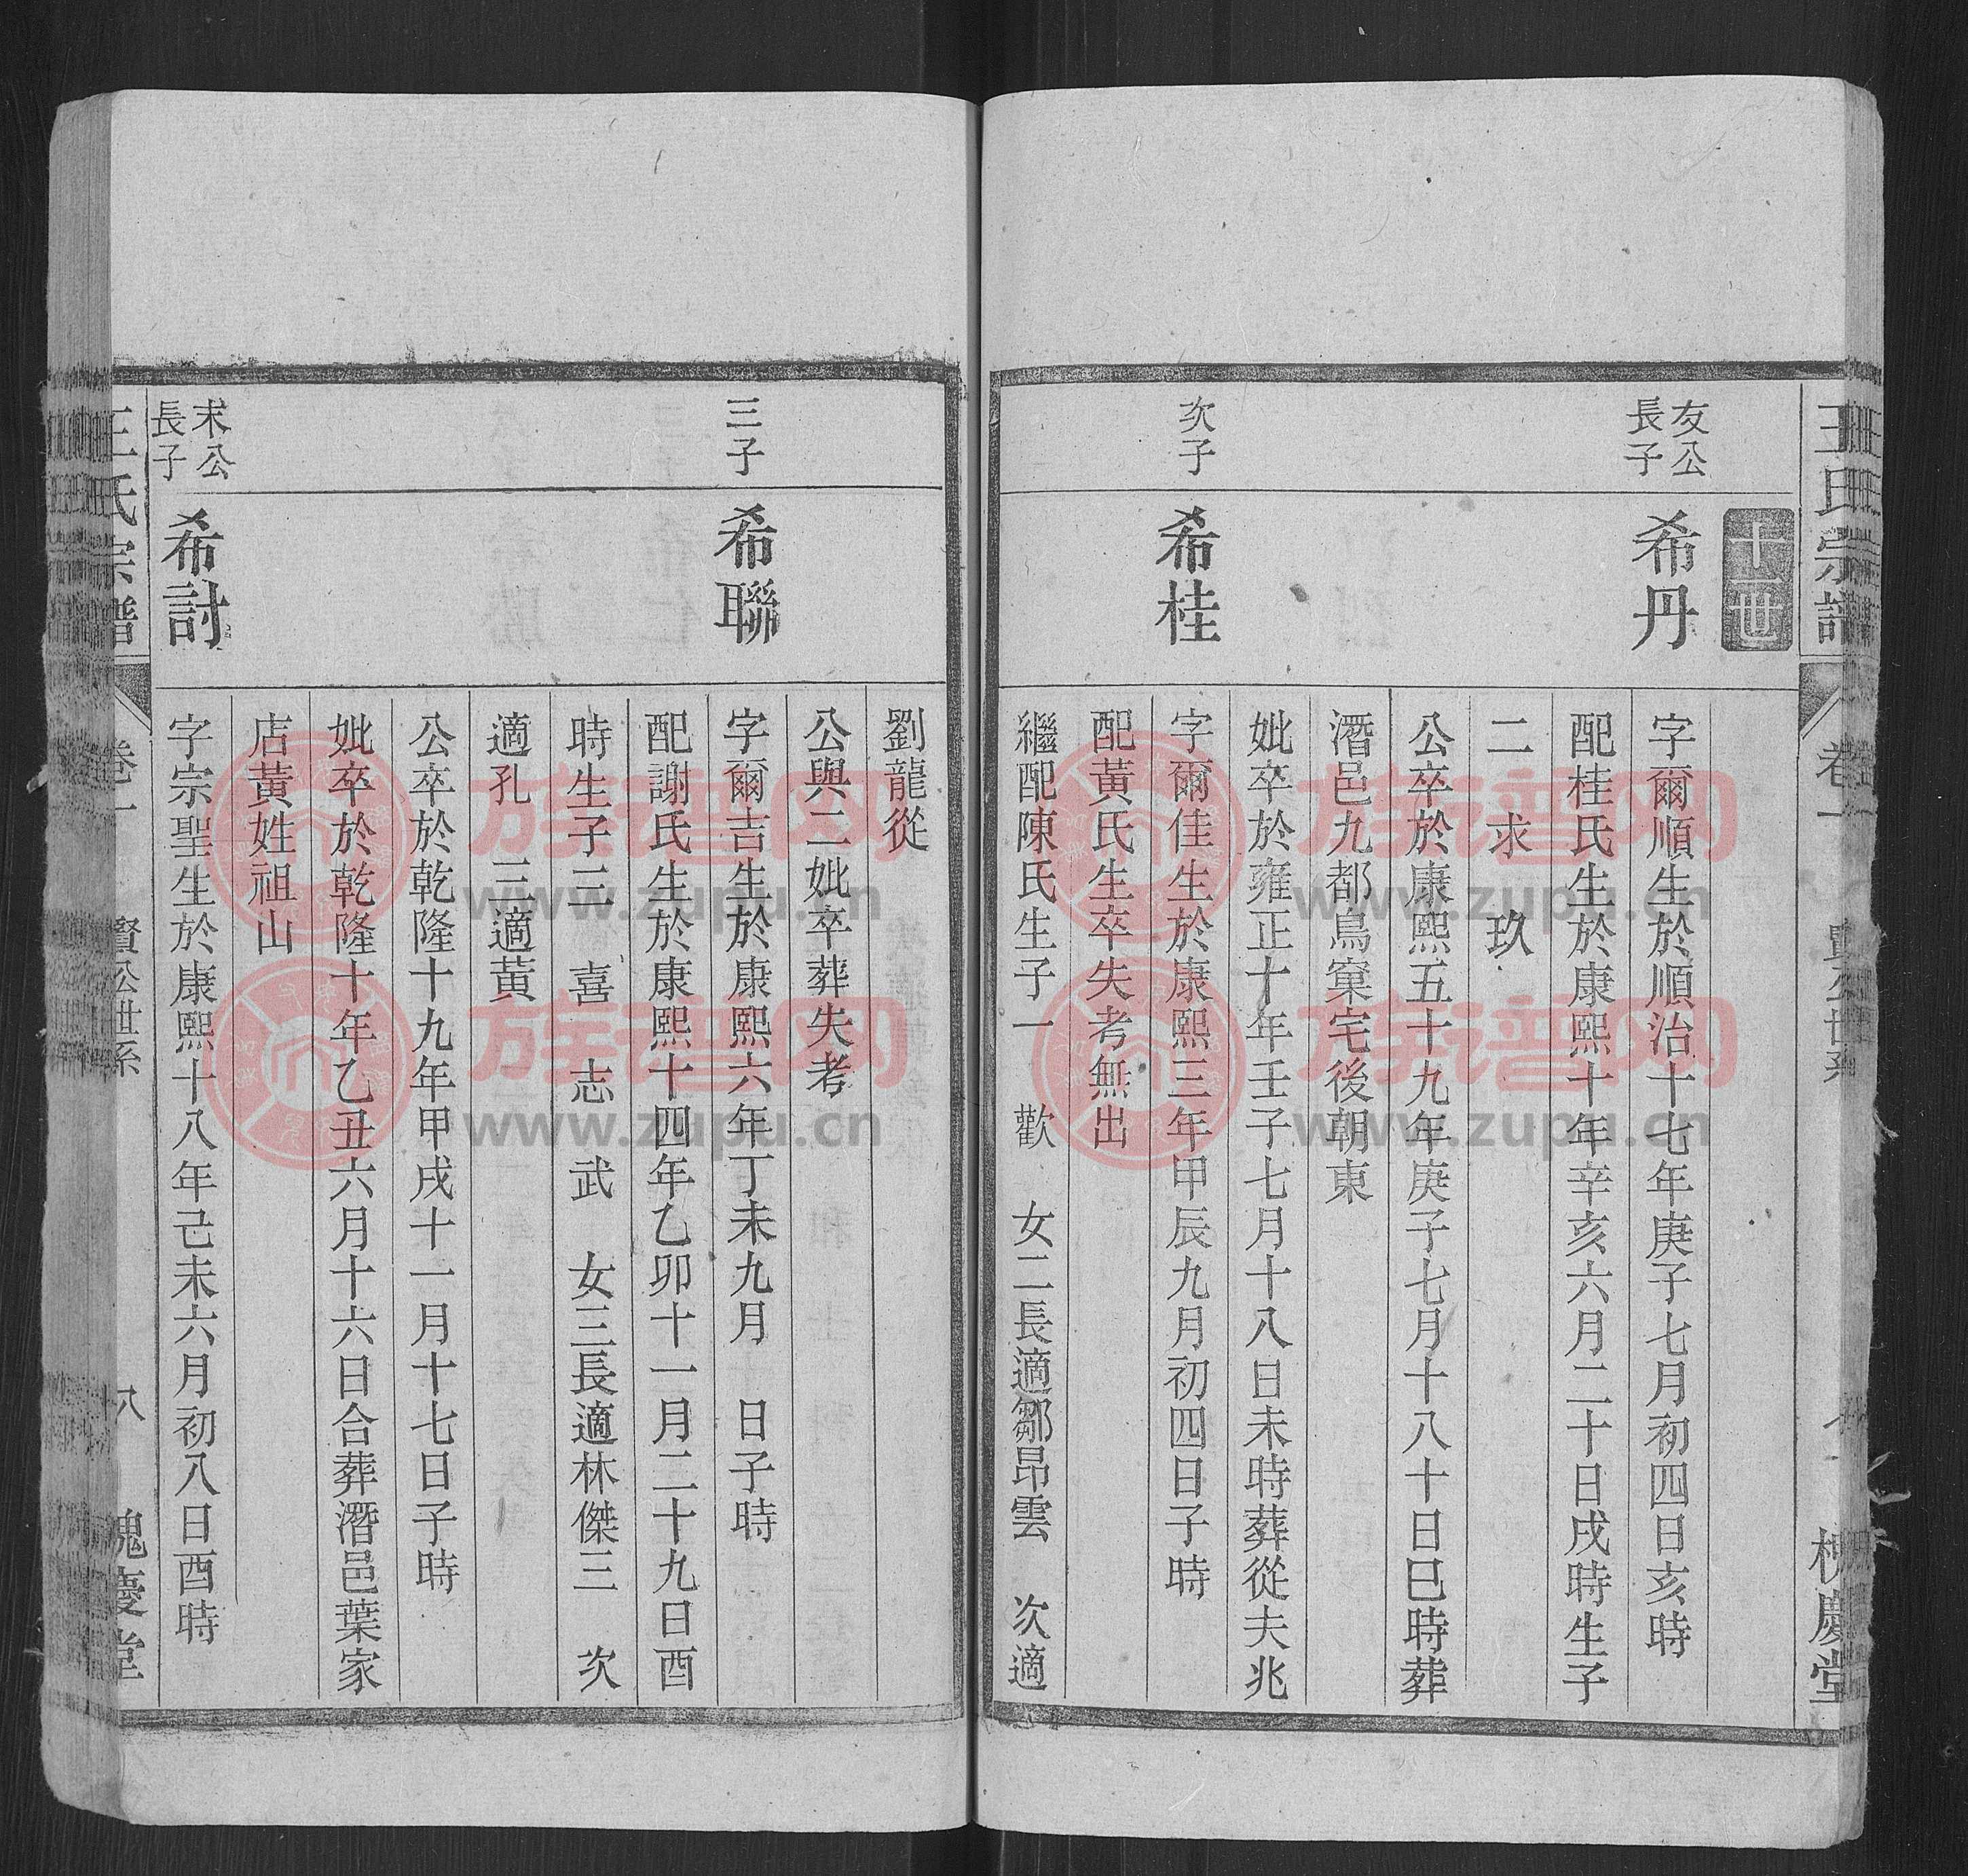 王氏宗譜 卷一 賢公世系 槐慶堂
十一世
友公
長子
希丹
字爾順生於順治十七年庚子七月初四日亥時
配桂氏生於康熙十年辛亥六月二十日戌時生子
二 求 玖
公卒於康熙五十九年庚子七月十八十日巳時葬
潛邑九都鳥窠宅後朝東
妣卒於雍正十年壬子七月十八日未時葬從夫兆
次子
希桂
字爾佳生於康熙三年甲辰九月初四日子時
配黃氏生卒失考無出
繼配陳氏生子一 歡 女二長適鄒昂雲 次適
劉龍從
公與二妣卒葬失考
三子
希聯
字爾吉生於康熙六年丁未九月 日子時
配謝氏生於康熙十四年乙卯十一月二十九日酉
時生子三 喜 志 武 女三長適林傑三 次
適孔 三適黃
公卒於乾隆十九年甲戌十一月十七日子時
妣卒於乾隆十年乙丑六月十六日合葬潛邑葉家
店黃姓祖山
末公
長子
希討
字宗聖生於康熙十八年己未六月初八日酉時
王氏宗譜 卷一 賢公世系 八 槐慶堂
族谱网
www.zupu.cn
族谱网
www.zupu.cn
族谱网
www.zupu.cn
族谱网
www.zupu.cn